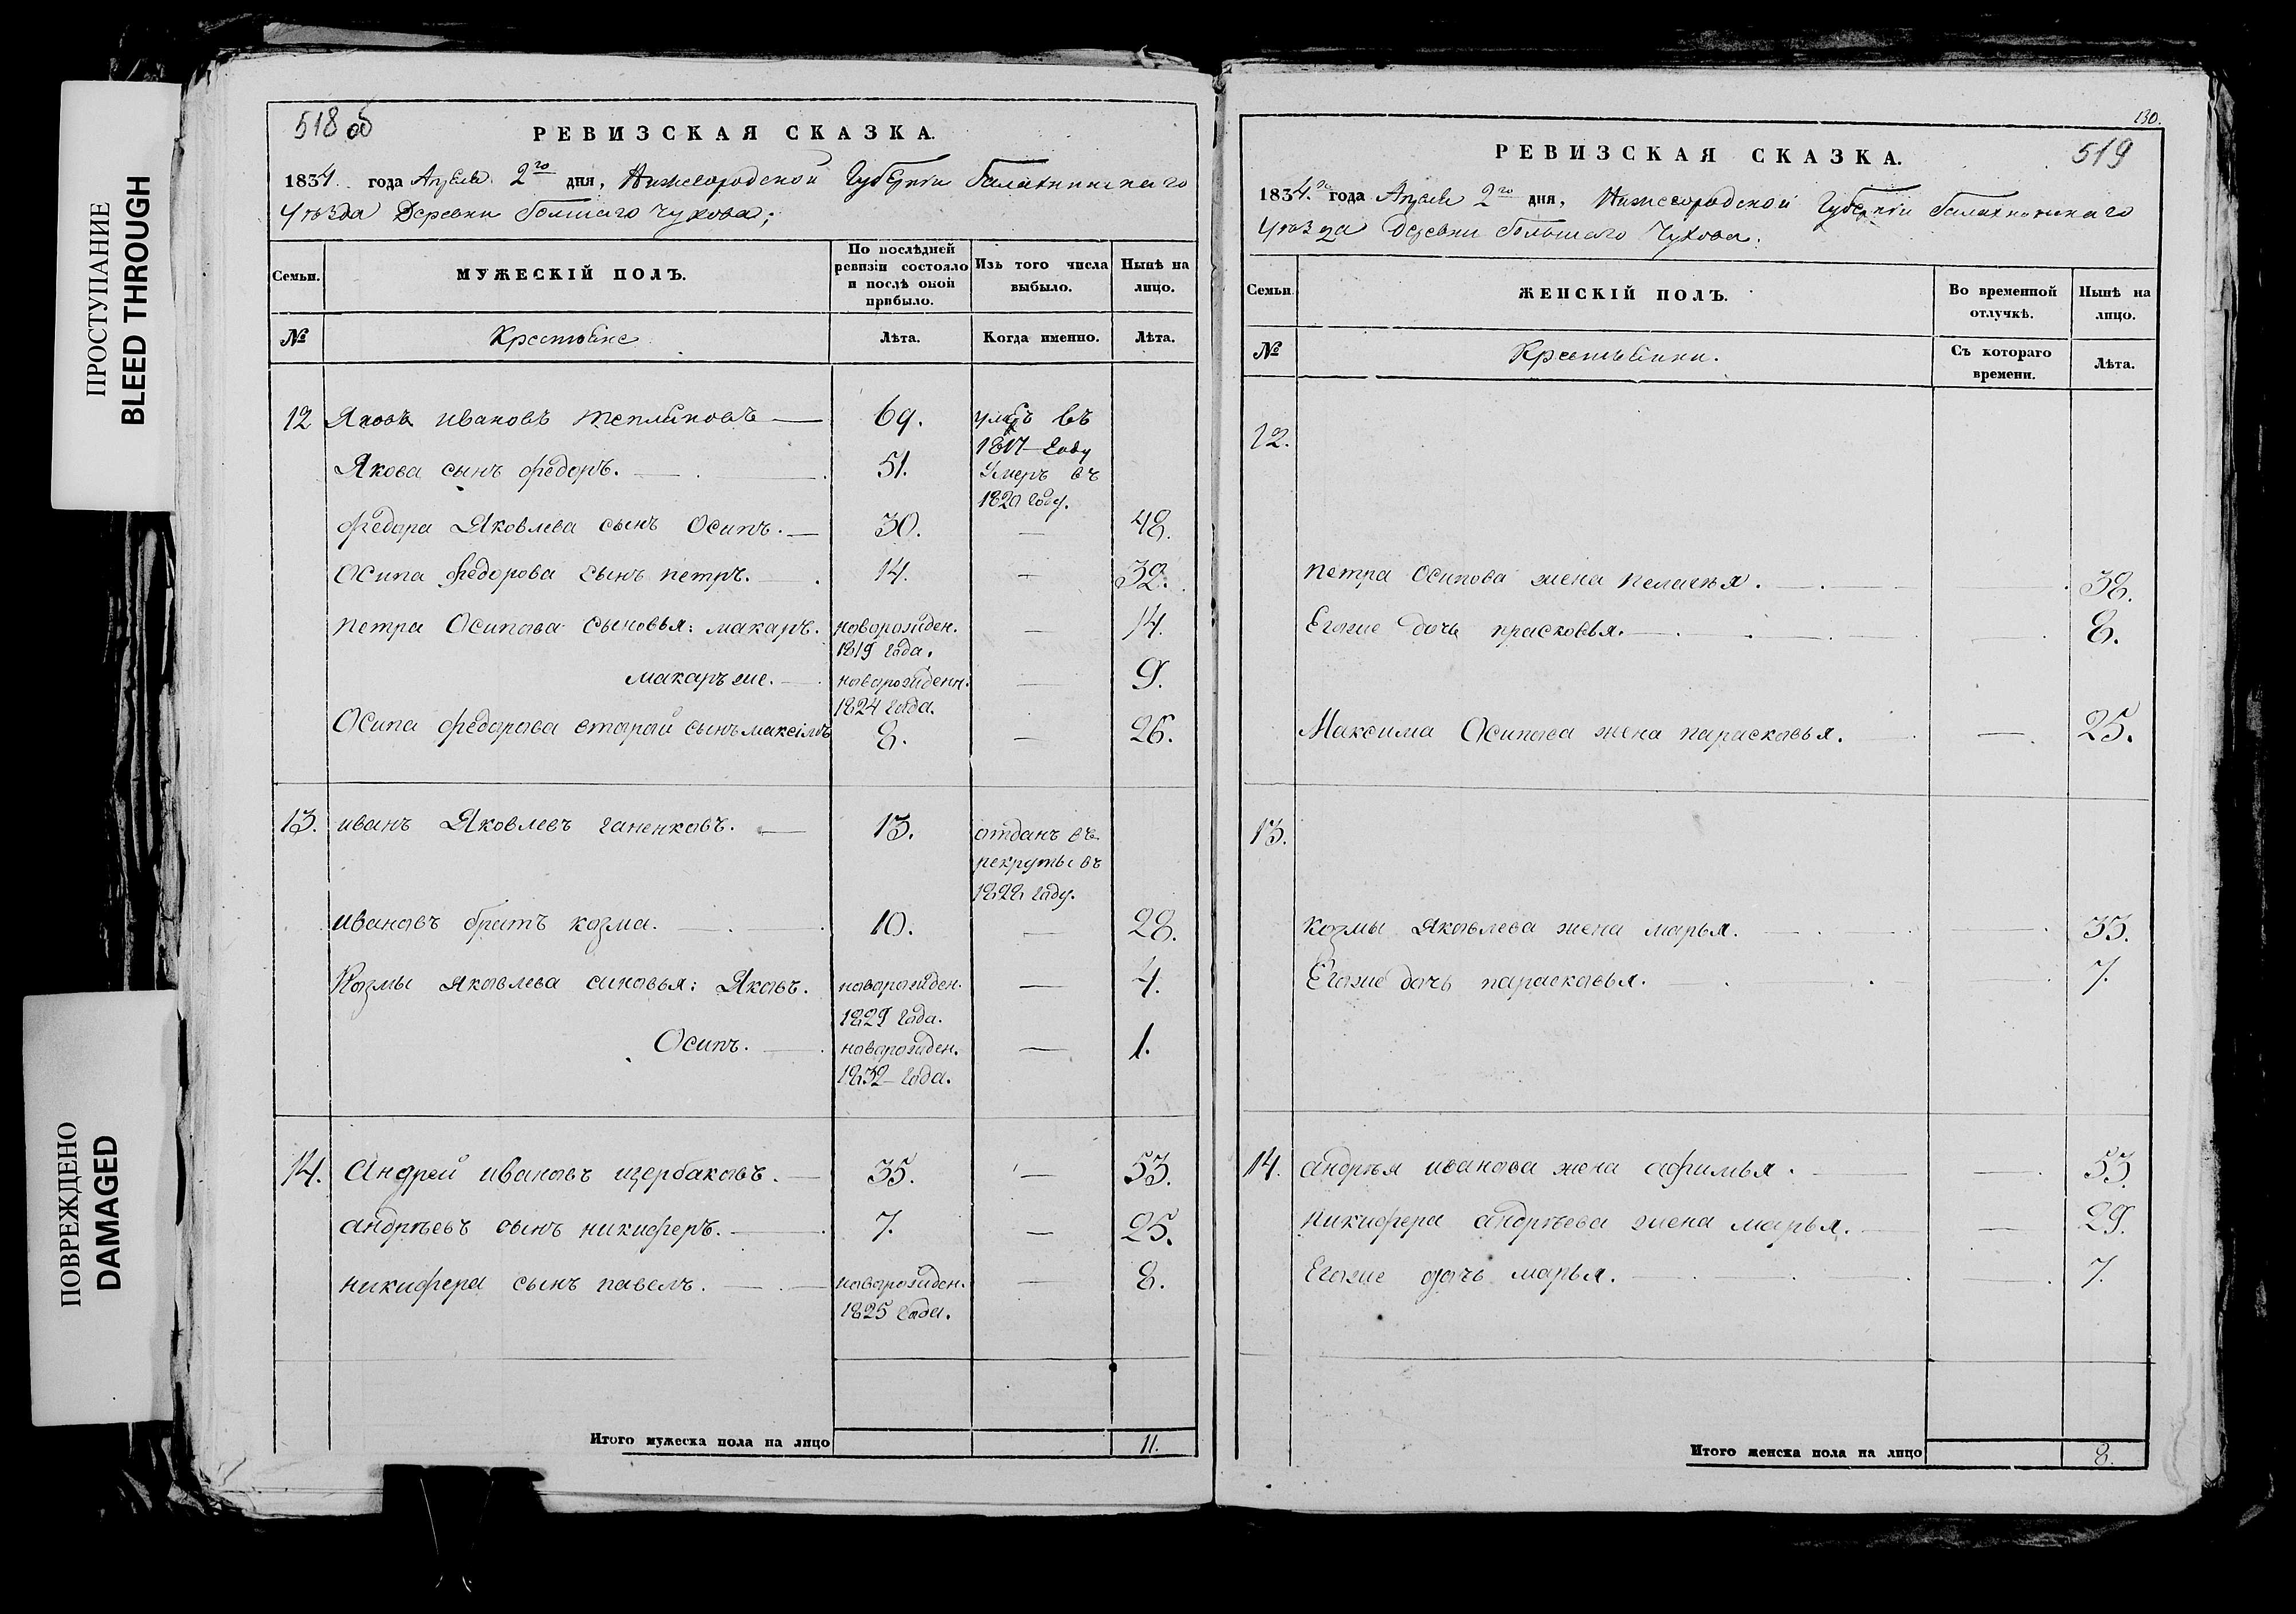 ПРОСТУПАНИЕ
BLEED THROUGH
ПОВРЕЖДЕНО
DAMAGED
518 об
РЕВИЗСКАЯ СКАЗКА.
1834. года Апреля 2го дня, Нижегородской Губернии Балахнинскаго
Уѣзда Деревни болшаго Чухова;
Семьи. МУЖЕСКІЙ ПОЛЪ. По послѣдней ревизіи состояло и послѣ оной прибыло. Изъ того числа выбыло. Нынѣ на лицо.
№ Крестьяне Лѣта. Когда именно. Лѣта.
12 Яковъ ивановъ 69. умеръ въ
1817 году
Якова сынъ федоръ. 51. Умеръ въ
1820 году.
федора Яковлева сынъ Осипъ. 30. — 48.
Осипа федорова сынъ петръ. 14. — 32.
петра Осипова сыновья: макаръ. новорожден. — 14.
1819 года.
макаръ же. новорожденн. — 9.
1824 года.
Осипа федорова второй сынъ максімъ 8. — 26.
13. иванъ Яковлевъ ганенковъ. 13. отданъ въ
рекруты въ
1828 году.
ивановъ братъ козма. 10. — 28.
Козмы яковлева синовья: Яковъ. новорожден. — 4.
1829 года.
Осипъ. новорожден. — 1.
1832 года.
14. Андрей ивановъ щербаковъ. 35. — 53.
андрѣевъ сынъ никиферъ. 7. — 25.
никифера сынъ павелъ. новорожден. — 8.
1825 года.
Итого мужеска пола на лицо 11.
130.
519
РЕВИЗСКАЯ СКАЗКА.
1834.го года Апреля 2го дня, Нижегородской Губерніи балахнинскаго
Уѣзда Деревни болшаго Чухова.
Семьи. ЖЕНСКІЙ ПОЛЪ. Во временной отлучкѣ. Нынѣ на лицо.
№ Крестьянки. Съ котораго времени. Лѣта.
12.
петра Осипова жена пелагея. 38.
Егоже дочь прасковья. 8.
Максима Осипова жена парасковья. — 25.
13.
козмы яковлева жена марья. — 33.
Егоже дочь парасковья. — 7.
14. андрѣя иванова жена афимья. — 53.
никифера андрѣева жена марья. — 29.
Егоже дочь марья. 7.
Итого женска пола на лицо 8.